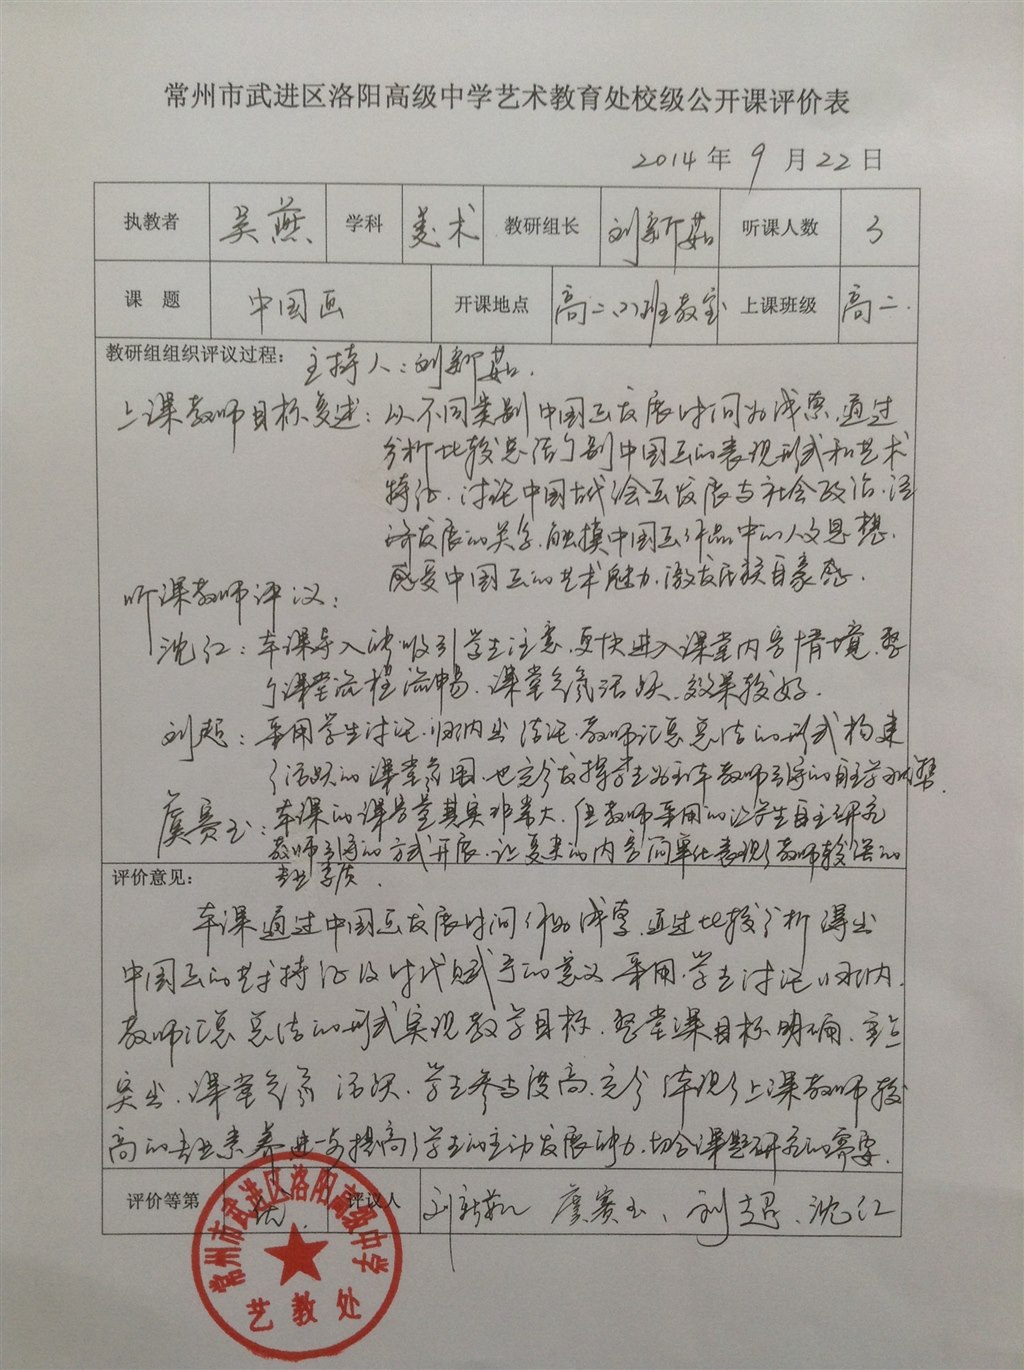 常州市武进区洛阳高级中学艺术教育处校级公开课评价表
2014年9月22日
执教者 吴燕 学科 美术 教研组长 刘新茹 听课人数 3
课 题 中国画 开课地点 高二(7)班教室 上课班级 高二.
教研组组织评议过程： 主持人：刘新茹.
上课教师目标复述：以不同类别中国画发展时间为线索,通过
分析比较总结个别中国画的表现形式和艺术
特征.讨论中国古代绘画发展与社会政治.经
济发展的关系.触摸中国画作品中的人文思想.
感受中国画的艺术魅力,激发民族自豪感.
听课教师评议：
沈红：本课导入能吸引学生注意,更快进入课堂内容情境.整
个课堂流程流畅.课堂气氛活跃.效果较好.
刘超：采用学生讨论.归纳出结论.教师汇总总结的形式构建
了活跃的课堂氛围.也充分发挥学生为主体教师引导的自主学习
虞赛玉：本课的课容量其实非常大,但教师采用的让学生自主研究
教师引导的方式开展.让复杂的内容简单化表现了教师较强的
专业素质.
评价意见：
本课通过中国画发展时间作为线索,通过比较分析得出
中国画的艺术特征及时代赋予的意义.采用学生讨论归纳.
教师汇总总结的形式实现教学目标.整堂课目标明确.重点
突出.课堂气氛活跃.学生参与度高.充分体现了上课教师较
高的专业素养进一步提高了学生的主动发展能力.切合课题研究的需要.
评价等第 优. 评议人 刘新茹 虞赛玉、刘超、沈红
常州市武进区洛阳高级中学
艺教处